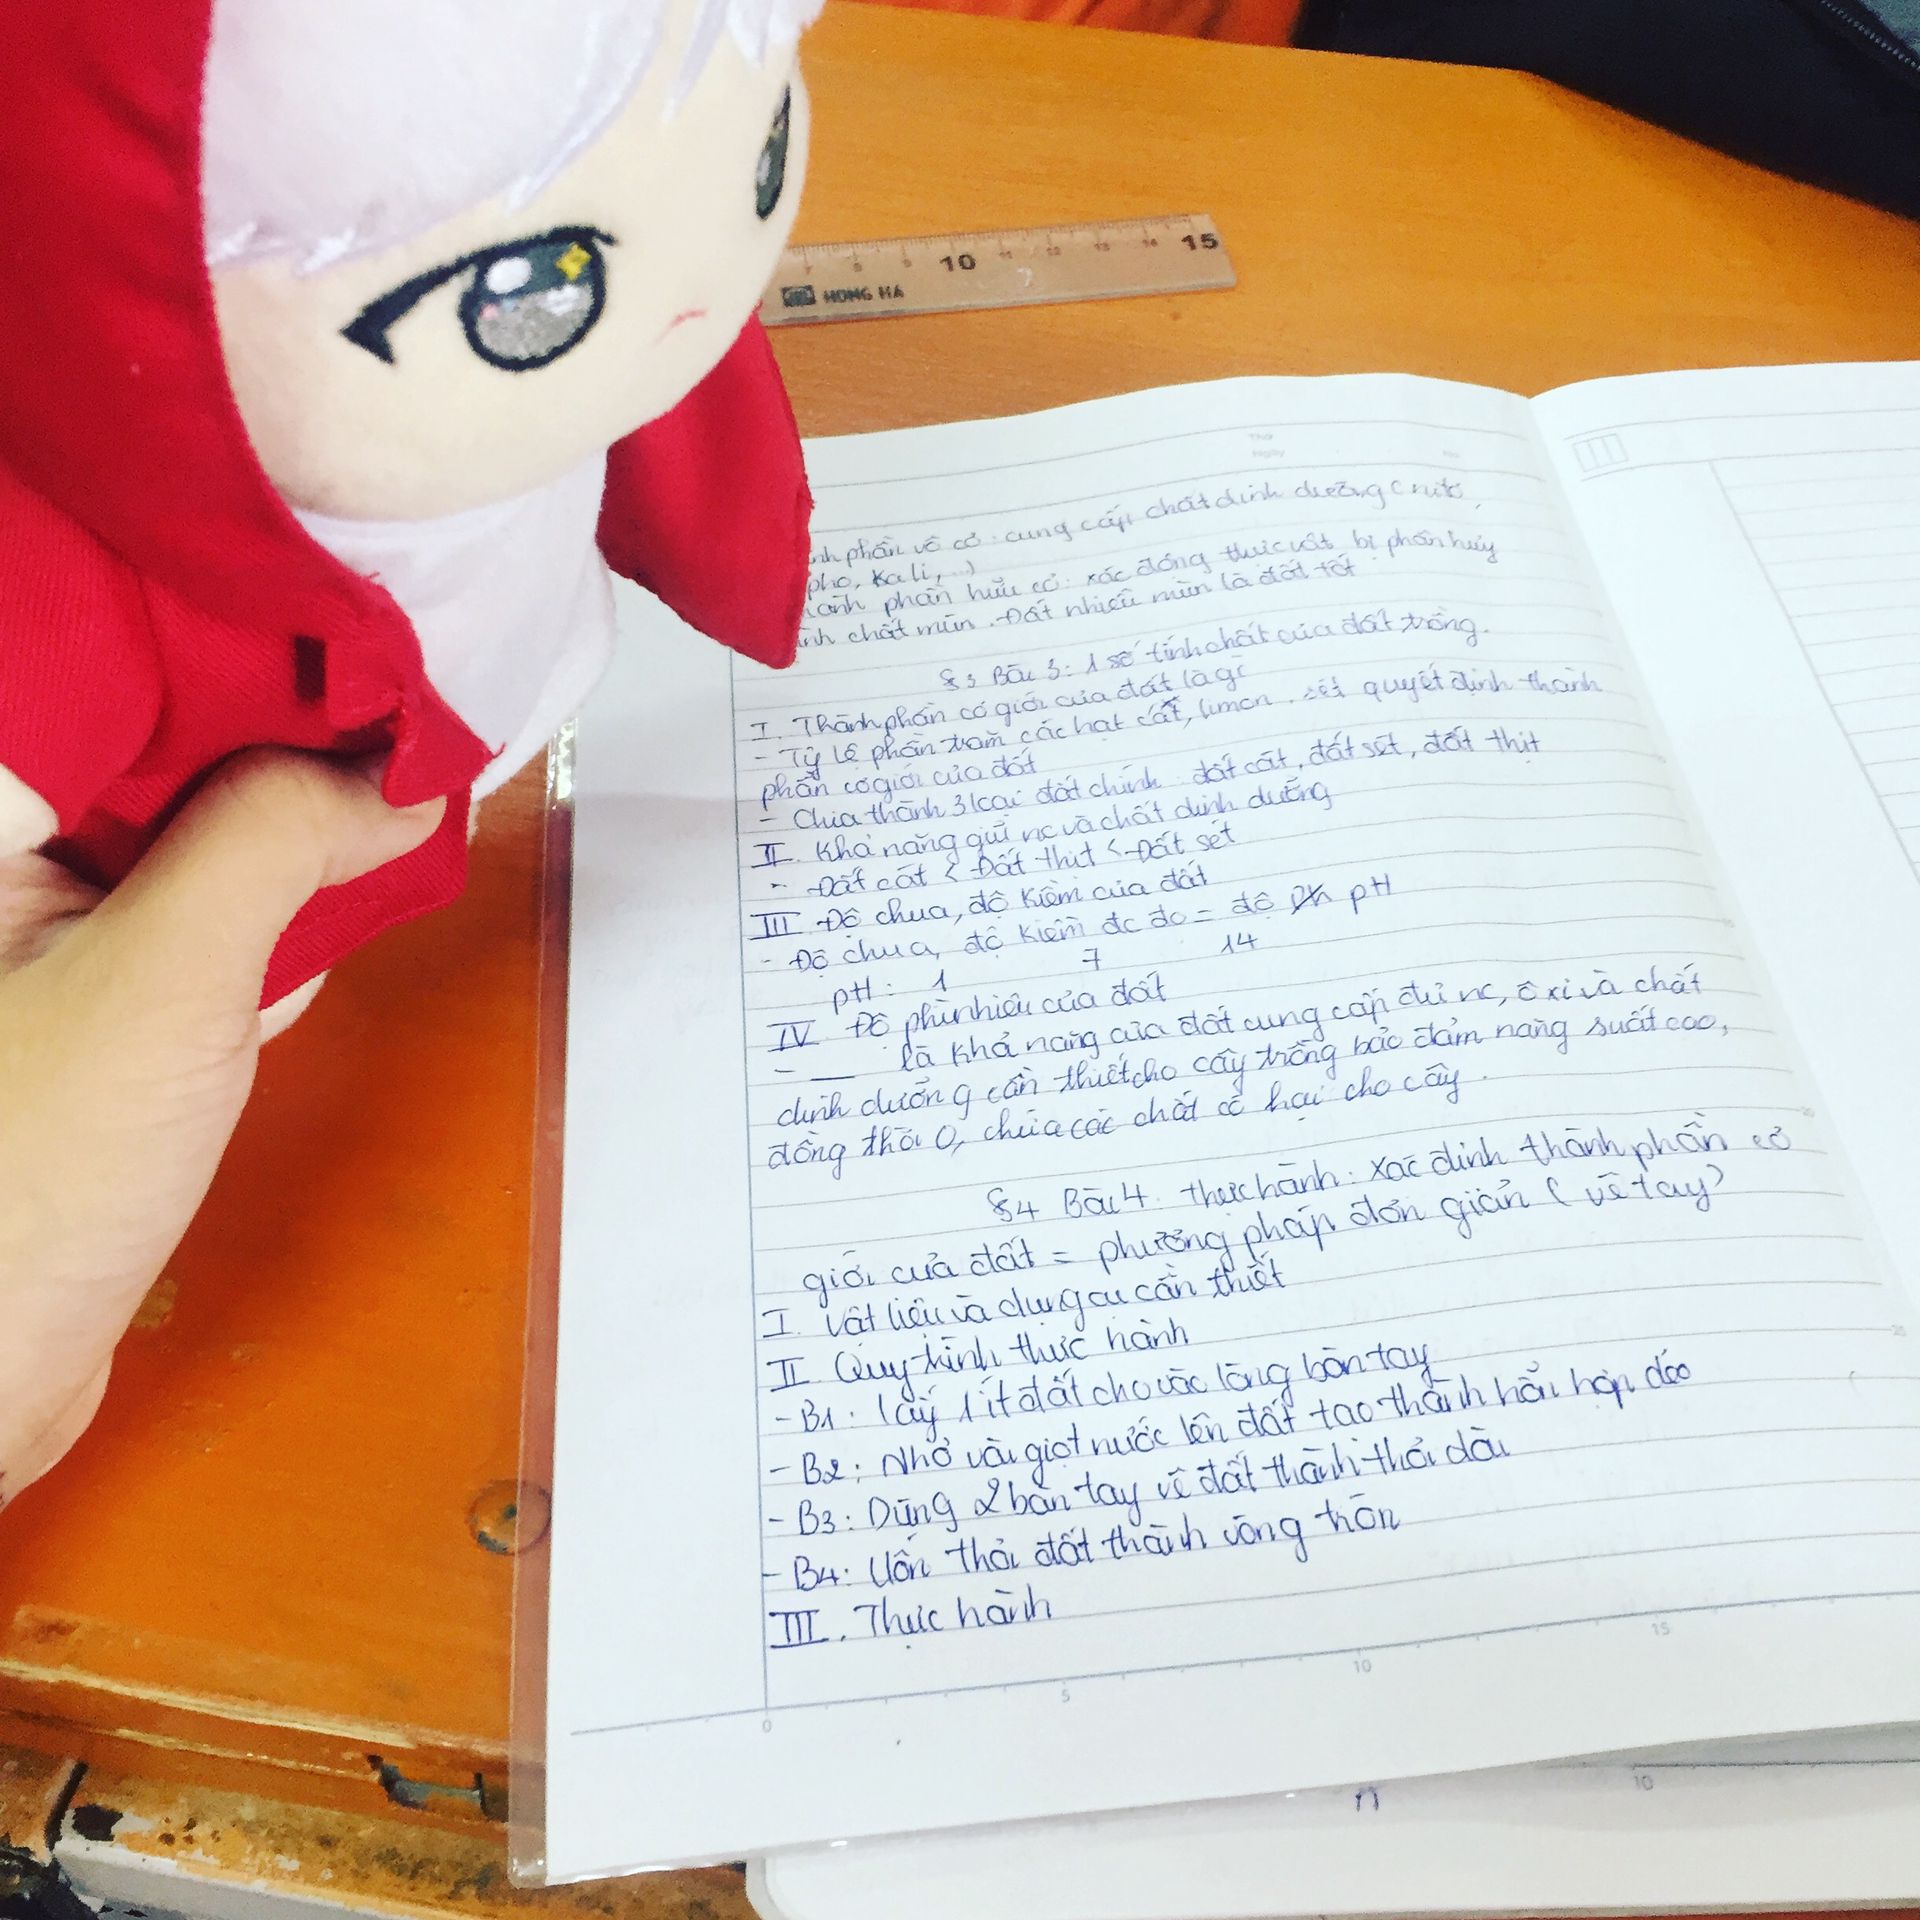 10 15
HONG HA
Thứ
Ngày No.
nh phần vô cơ: cung cấp chất dinh dưỡng ( nitơ,
pho, kali,...)
hành phần hữu cơ: xác động thực vật bị phân hủy
ành chất mùn. Đất nhiều mùn là đất tốt
§3 Bài 3: 1 số tính chất của đất trồng.
I. Thành phần cơ giới của đất là gì
- Tỷ lệ phần trăm các hạt cát, limon, sét quyết định thành
phần cơ giới của đất
- Chia thành 3 loại đất chính: đất cát, đất sét, đất thịt
II. Khả năng giữ nc và chất dinh dưỡng
- Đất cát < Đất thịt < Đất sét
III. Độ chua, độ kiềm của đất
- Độ chua, độ kiềm đc đo = độ pH
pH: 1 7 14
IV. Độ phì nhiêu của đất
- __ là khả năng của đất cung cấp đủ nc, ôxi và chất
dinh dưỡng cần thiết cho cây trồng bảo đảm năng suất cao,
đồng thời 0, chứa các chất có hại cho cây.
§4 Bài 4: thực hành: Xác định thành phần cơ
giới của đất = phương pháp đơn giản ( vê tay)
I. Vật liệu và dụng cụ cần thiết
II. Quy trình thực hành
- B1: lấy 1 ít đất cho vào lòng bàn tay
- B2: Nhỏ vài giọt nước lên đất tạo thành hỗn hợp dẻo
- B3: Dùng 2 bàn tay vê đất thành thỏi dài
- B4: Uốn thỏi đất thành vòng tròn
III. Thực hành
0 5 10 15
10